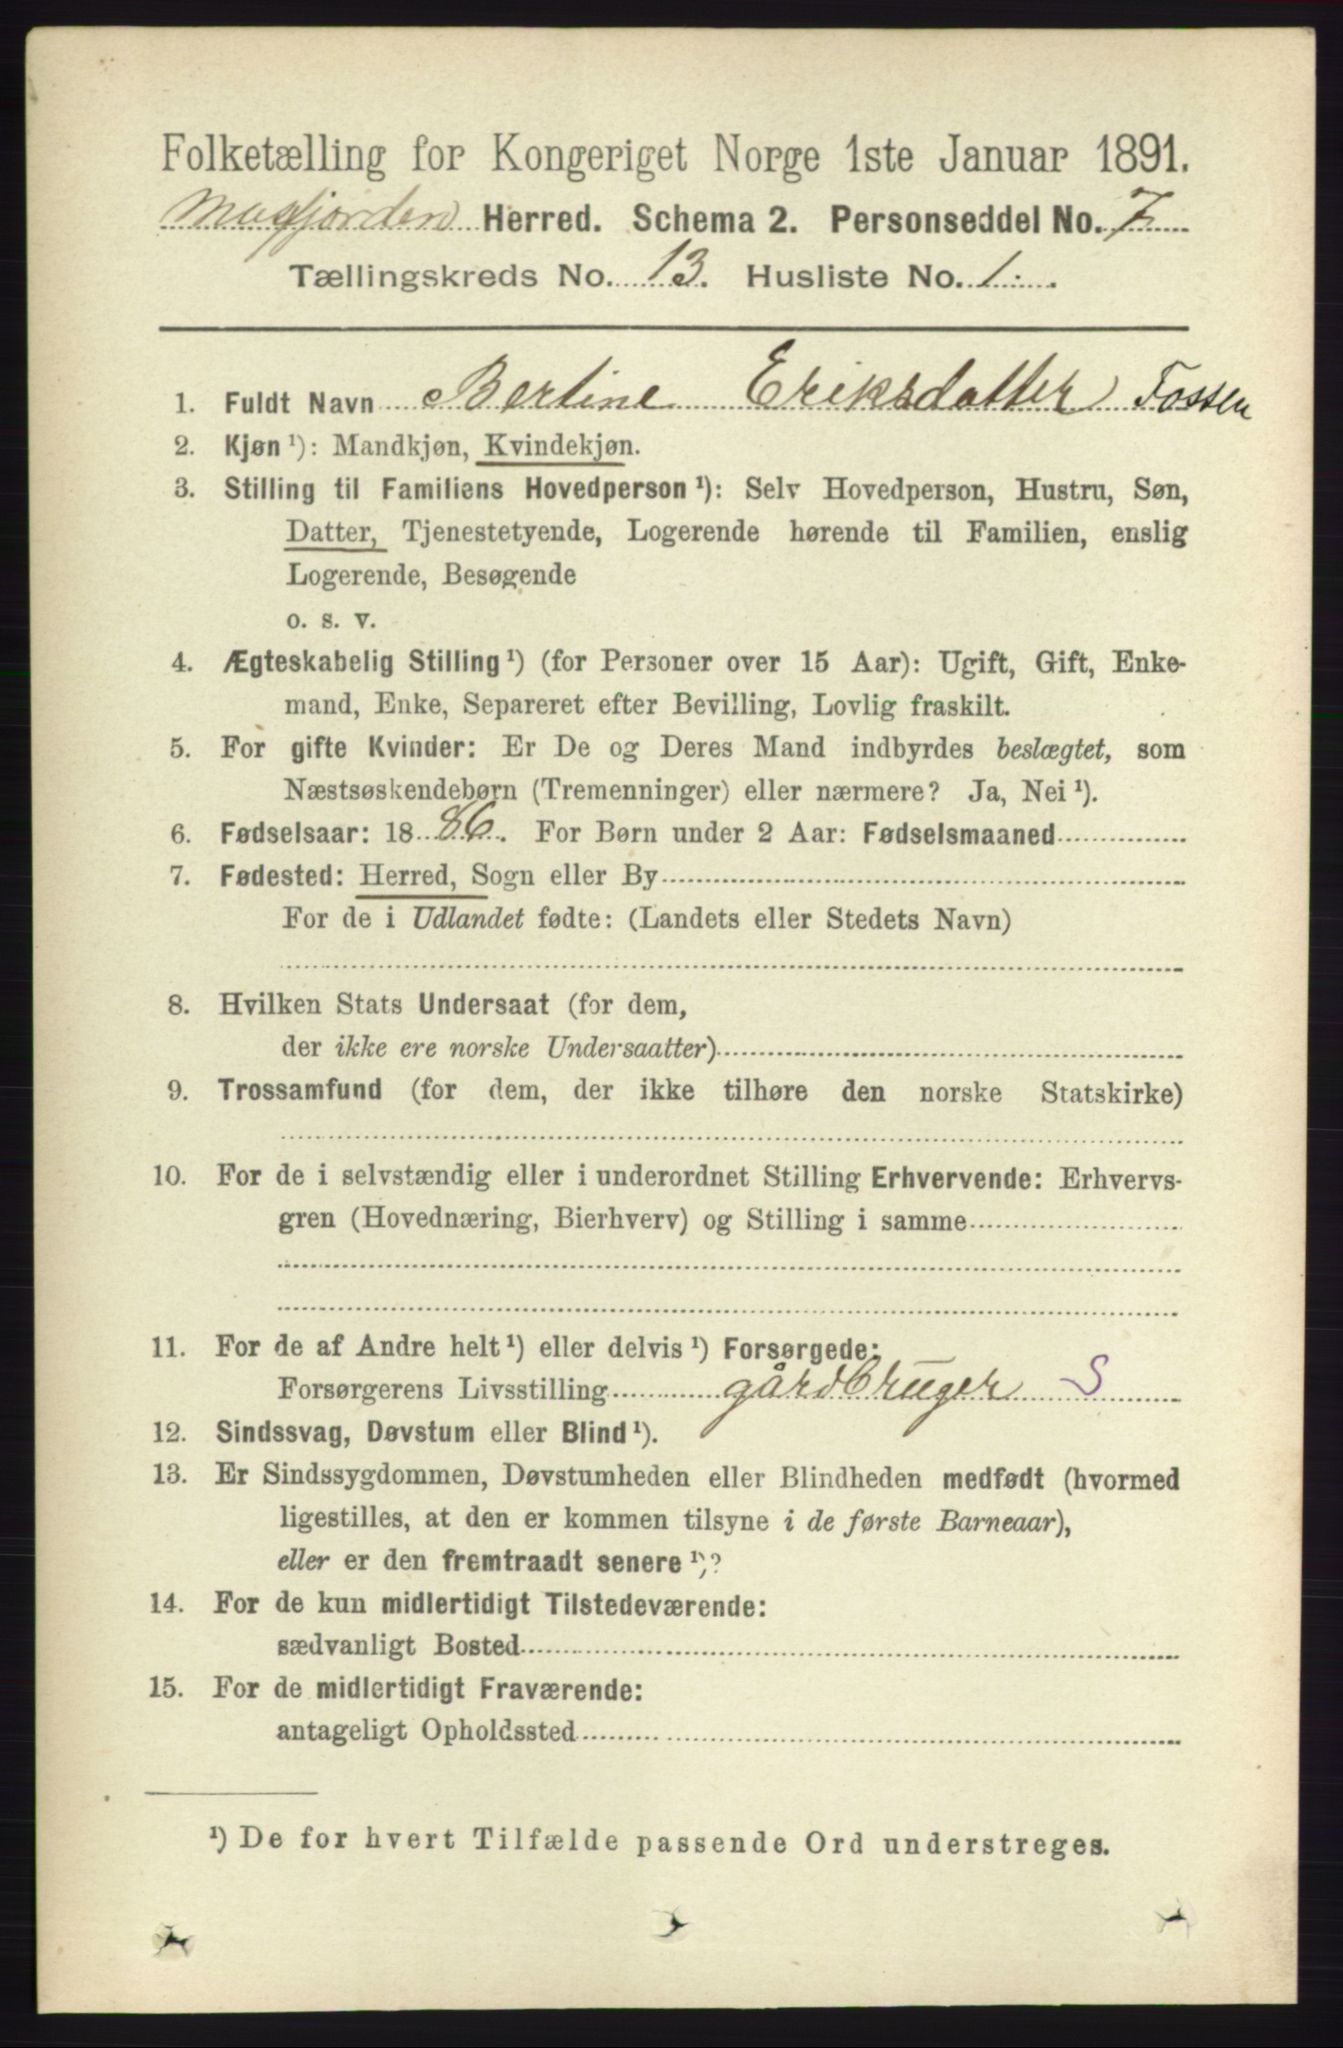 Folketælling for Kongeriget Norge 1ste Januar 1891.
Herred. Schema 2. Personseddel No. 7
Tællingskreds No. 13. Husliste No. 1.
1. Fuldt Navn Bertine Eriksdatter Fossen
2. Kjøn ¹): Mandkjøn, Kvindekjøn.
3. Stilling til Familiens Hovedperson ¹): Selv Hovedperson, Hustru, Søn,
Datter, Tjenestetyende, Logerende hørende til Familien, enslig
Logerende, Besøgende
o. s. v.
4. Ægteskabelig Stilling ¹) (for Personer over 15 Aar): Ugift, Gift, Enke-
mand, Enke, Separeret efter Bevilling, Lovlig fraskilt.
5. For gifte Kvinder: Er De og Deres Mand indbyrdes beslægtet, som
Næstsøskendebørn (Tremenninger) eller nærmere? Ja, Nei ¹).
6. Fødselsaar: 1886. For Børn under 2 Aar: Fødselsmaaned
7. Fødested: Herred, Sogn eller By
For de i Udlandet fødte: (Landets eller Stedets Navn)
8. Hvilken Stats Undersaat (for dem,
der ikke ere norske Undersaatter)
9. Trossamfund (for dem, der ikke tilhøre den norske Statskirke)
10. For de i selvstændig eller i underordnet Stilling Erhvervende: Erhvervs-
gren (Hovednæring, Bierhverv) og Stilling i samme
11. For de af Andre helt ¹) eller delvis ¹) Forsørgede:
Forsørgerens Livsstilling gårdbruger S
12. Sindssvag, Døvstum eller Blind ¹).
13. Er Sindssygdommen, Døvstumheden eller Blindheden medfødt (hvormed
ligestilles, at den er kommen tilsyne i de første Barneaar),
eller er den fremtraadt senere ¹)?
14. For de kun midlertidigt Tilstedeværende:
sædvanligt Bosted
15. For de midlertidigt Fraværende:
antageligt Opholdssted
¹) De for hvert Tilfælde passende Ord understreges.